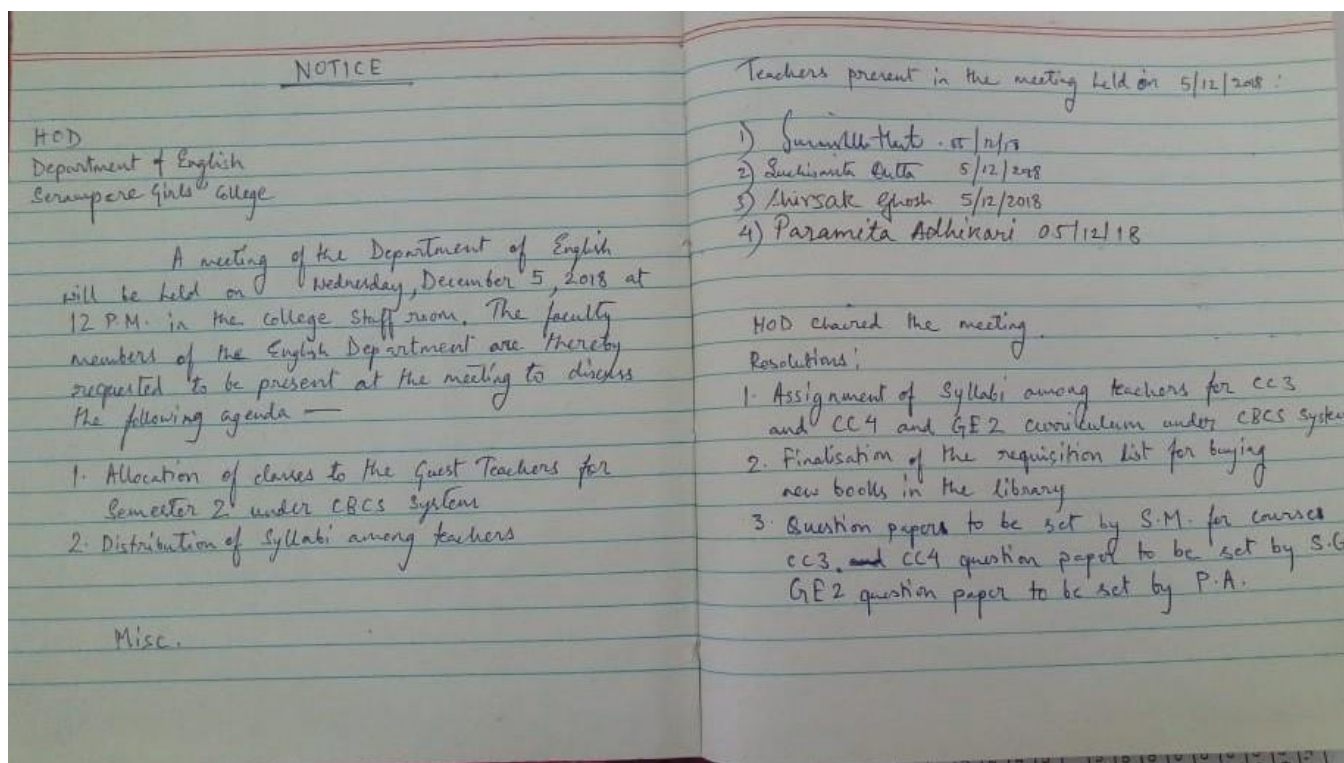 NOTICE
HOD
Department of English
Serampore Girls' College
A meeting of the Department of English
will be held on Wednesday, December 5, 2018 at
12 P.M. in the College Staff room. The faculty
members of the English Department are thereby
requested to be present at the meeting to discuss
the following agenda —
1. Allocation of classes to the Guest Teachers for
Semester 2 under CBCS System
2. Distribution of Syllabi among teachers
Misc.
Teachers present in the meeting held on 5/12/2018 :
1)
2) Suchismita Dutta 5/12/2018
3) Shirsak Ghosh 5/12/2018
4) Paramita Adhikari 05/12/18
HOD chaired the meeting.
Resolutions:
1. Assignment of Syllabi among teachers for CC3
and CC4 and GE2 curriculum under CBCS Syste
2. Finalisation of the requisition list for buying
new books in the library
3. Question papers to be set by S.M. for courses
CC3. CC4 question paper to be set by S.G
GE2 question paper to be set by P.A.